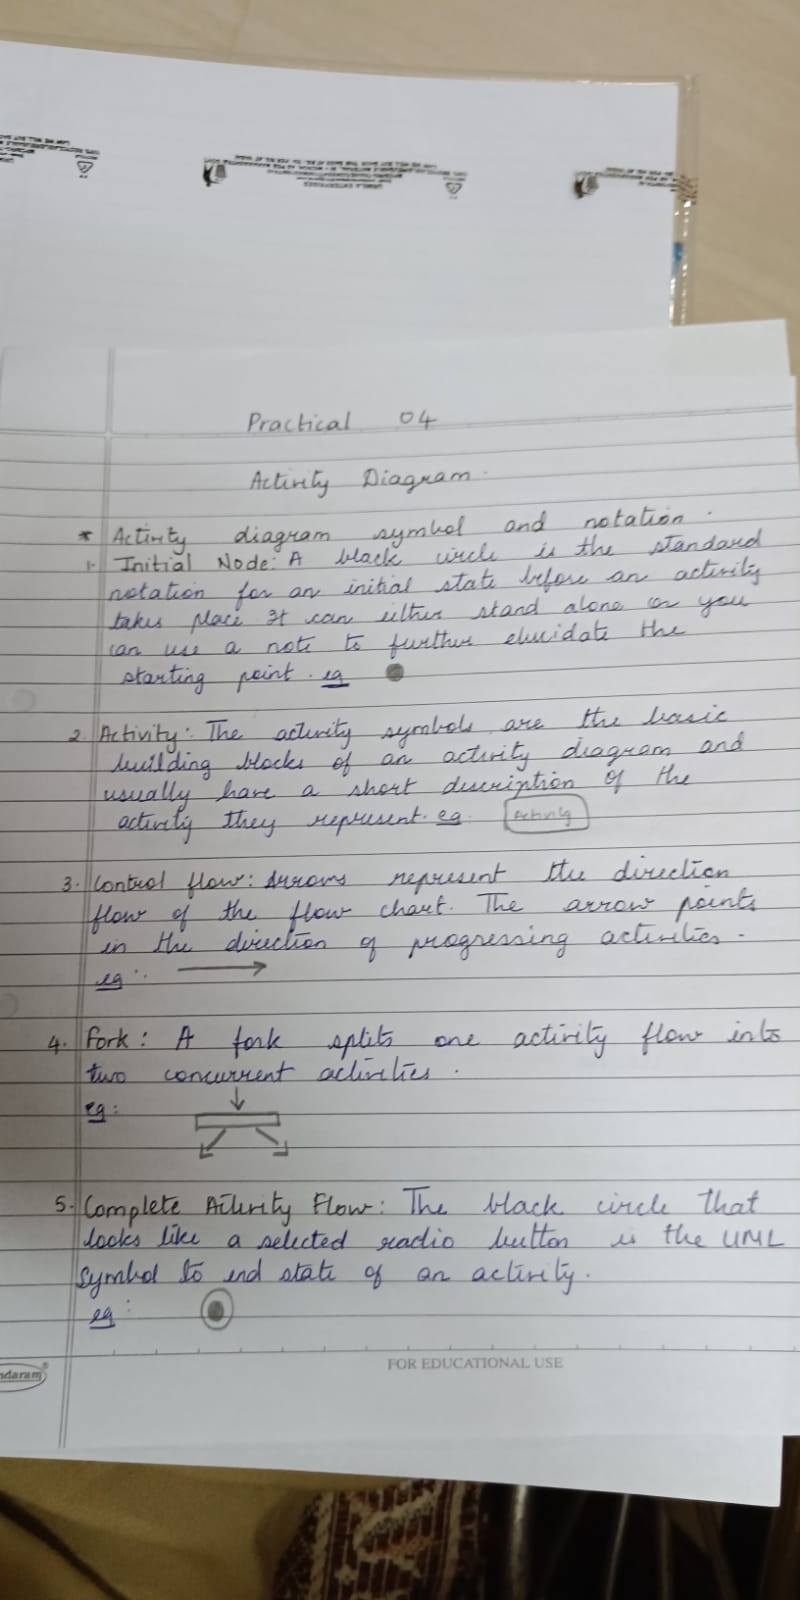 Practical 04
Activity Diagram.
* Activity diagram symbol and notation.
1. Initial Node: A black circle is the standard
notation for an initial state before an activity
takes place It can either stand alone or you
can use a note to further elucidate the
starting point. eg
2. Activity: The activity symbols are the basic
building blocks of an activity diagram and
usually have a short description of the
activity they represent. eg Activity
3. Control flow: Arrows represent the direction
flow of the flow chart. The arrow points
in the direction of progressing activities.
eg:
4. Fork: A fork splits one activity flow into
two concurrent activities.
eg:
5. Complete Activity Flow: The black circle that
looks like a selected radio button is the UML
symbol to end state of an activity.
eg:
FOR EDUCATIONAL USE